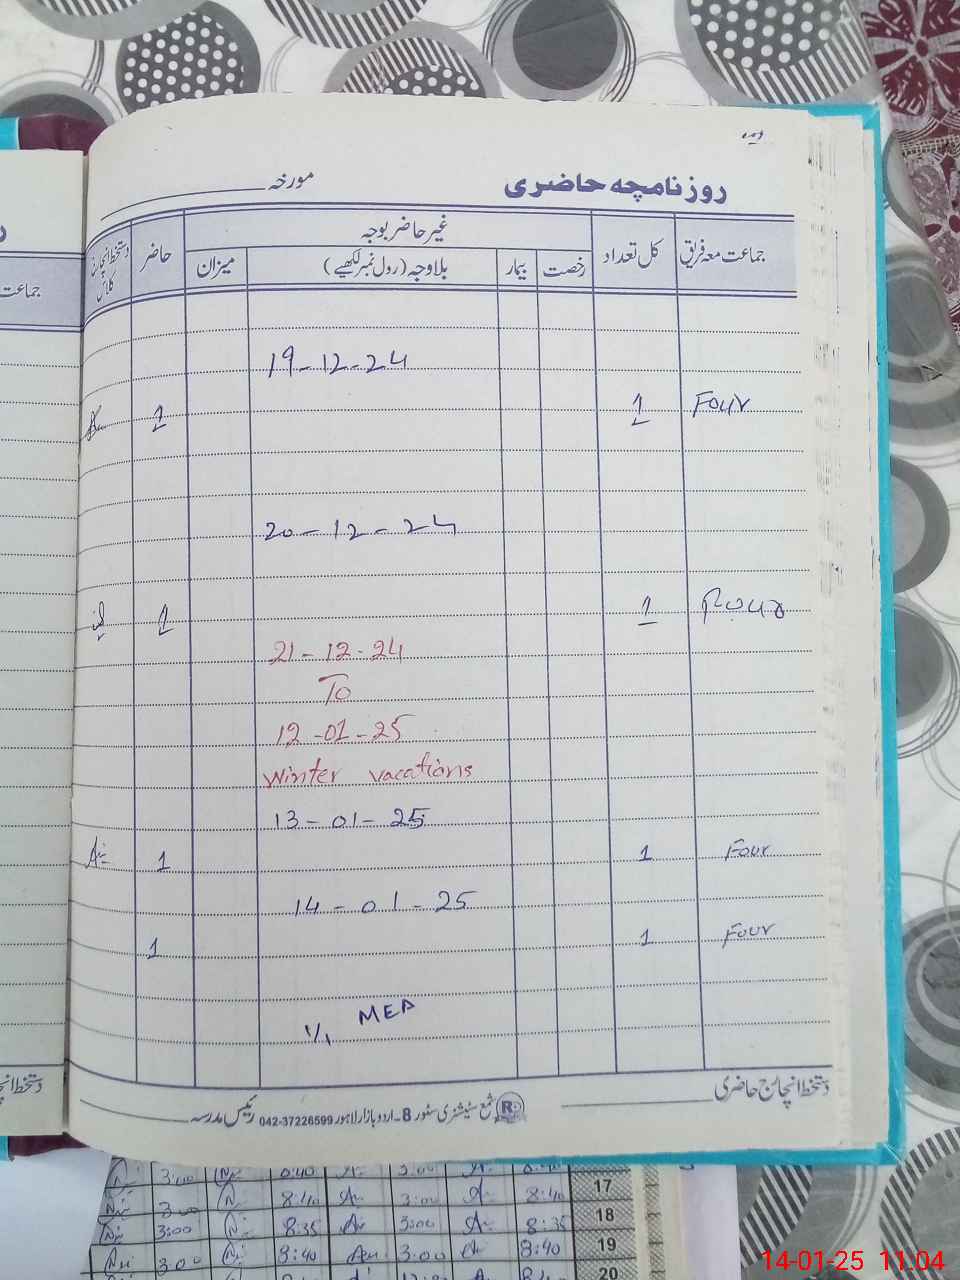 روزنامچہ حاضری مورخہ
جماعت معہ فریق کل تعداد غیر حاضر بوجہ حاضر دستخط انچارج کلاس
رخصت بیمار بلاوجہ (رول نمبر لکھیے) میزان
19-12-24
Four 1 1
20-12-24
Four 1 1
21-12-24
To
12-01-25
Winter vacations
13-01-25
Four 1 1
14-01-25
Four 1 1
1/1 MEA
دستخط انچارج حاضری
شمع سٹیشنری سٹور 8-اردو بازار لاہور 042-37226599 رئیس مدرسہ
جماعت
دستخط
3:00 8:40 3:00 8:40 17
3:00 8:40 3:00 8:40 18
3:00 8:35 3:00 8:35
3:00 8:40 3:00 8:40 19
20
14-01-25 11:04